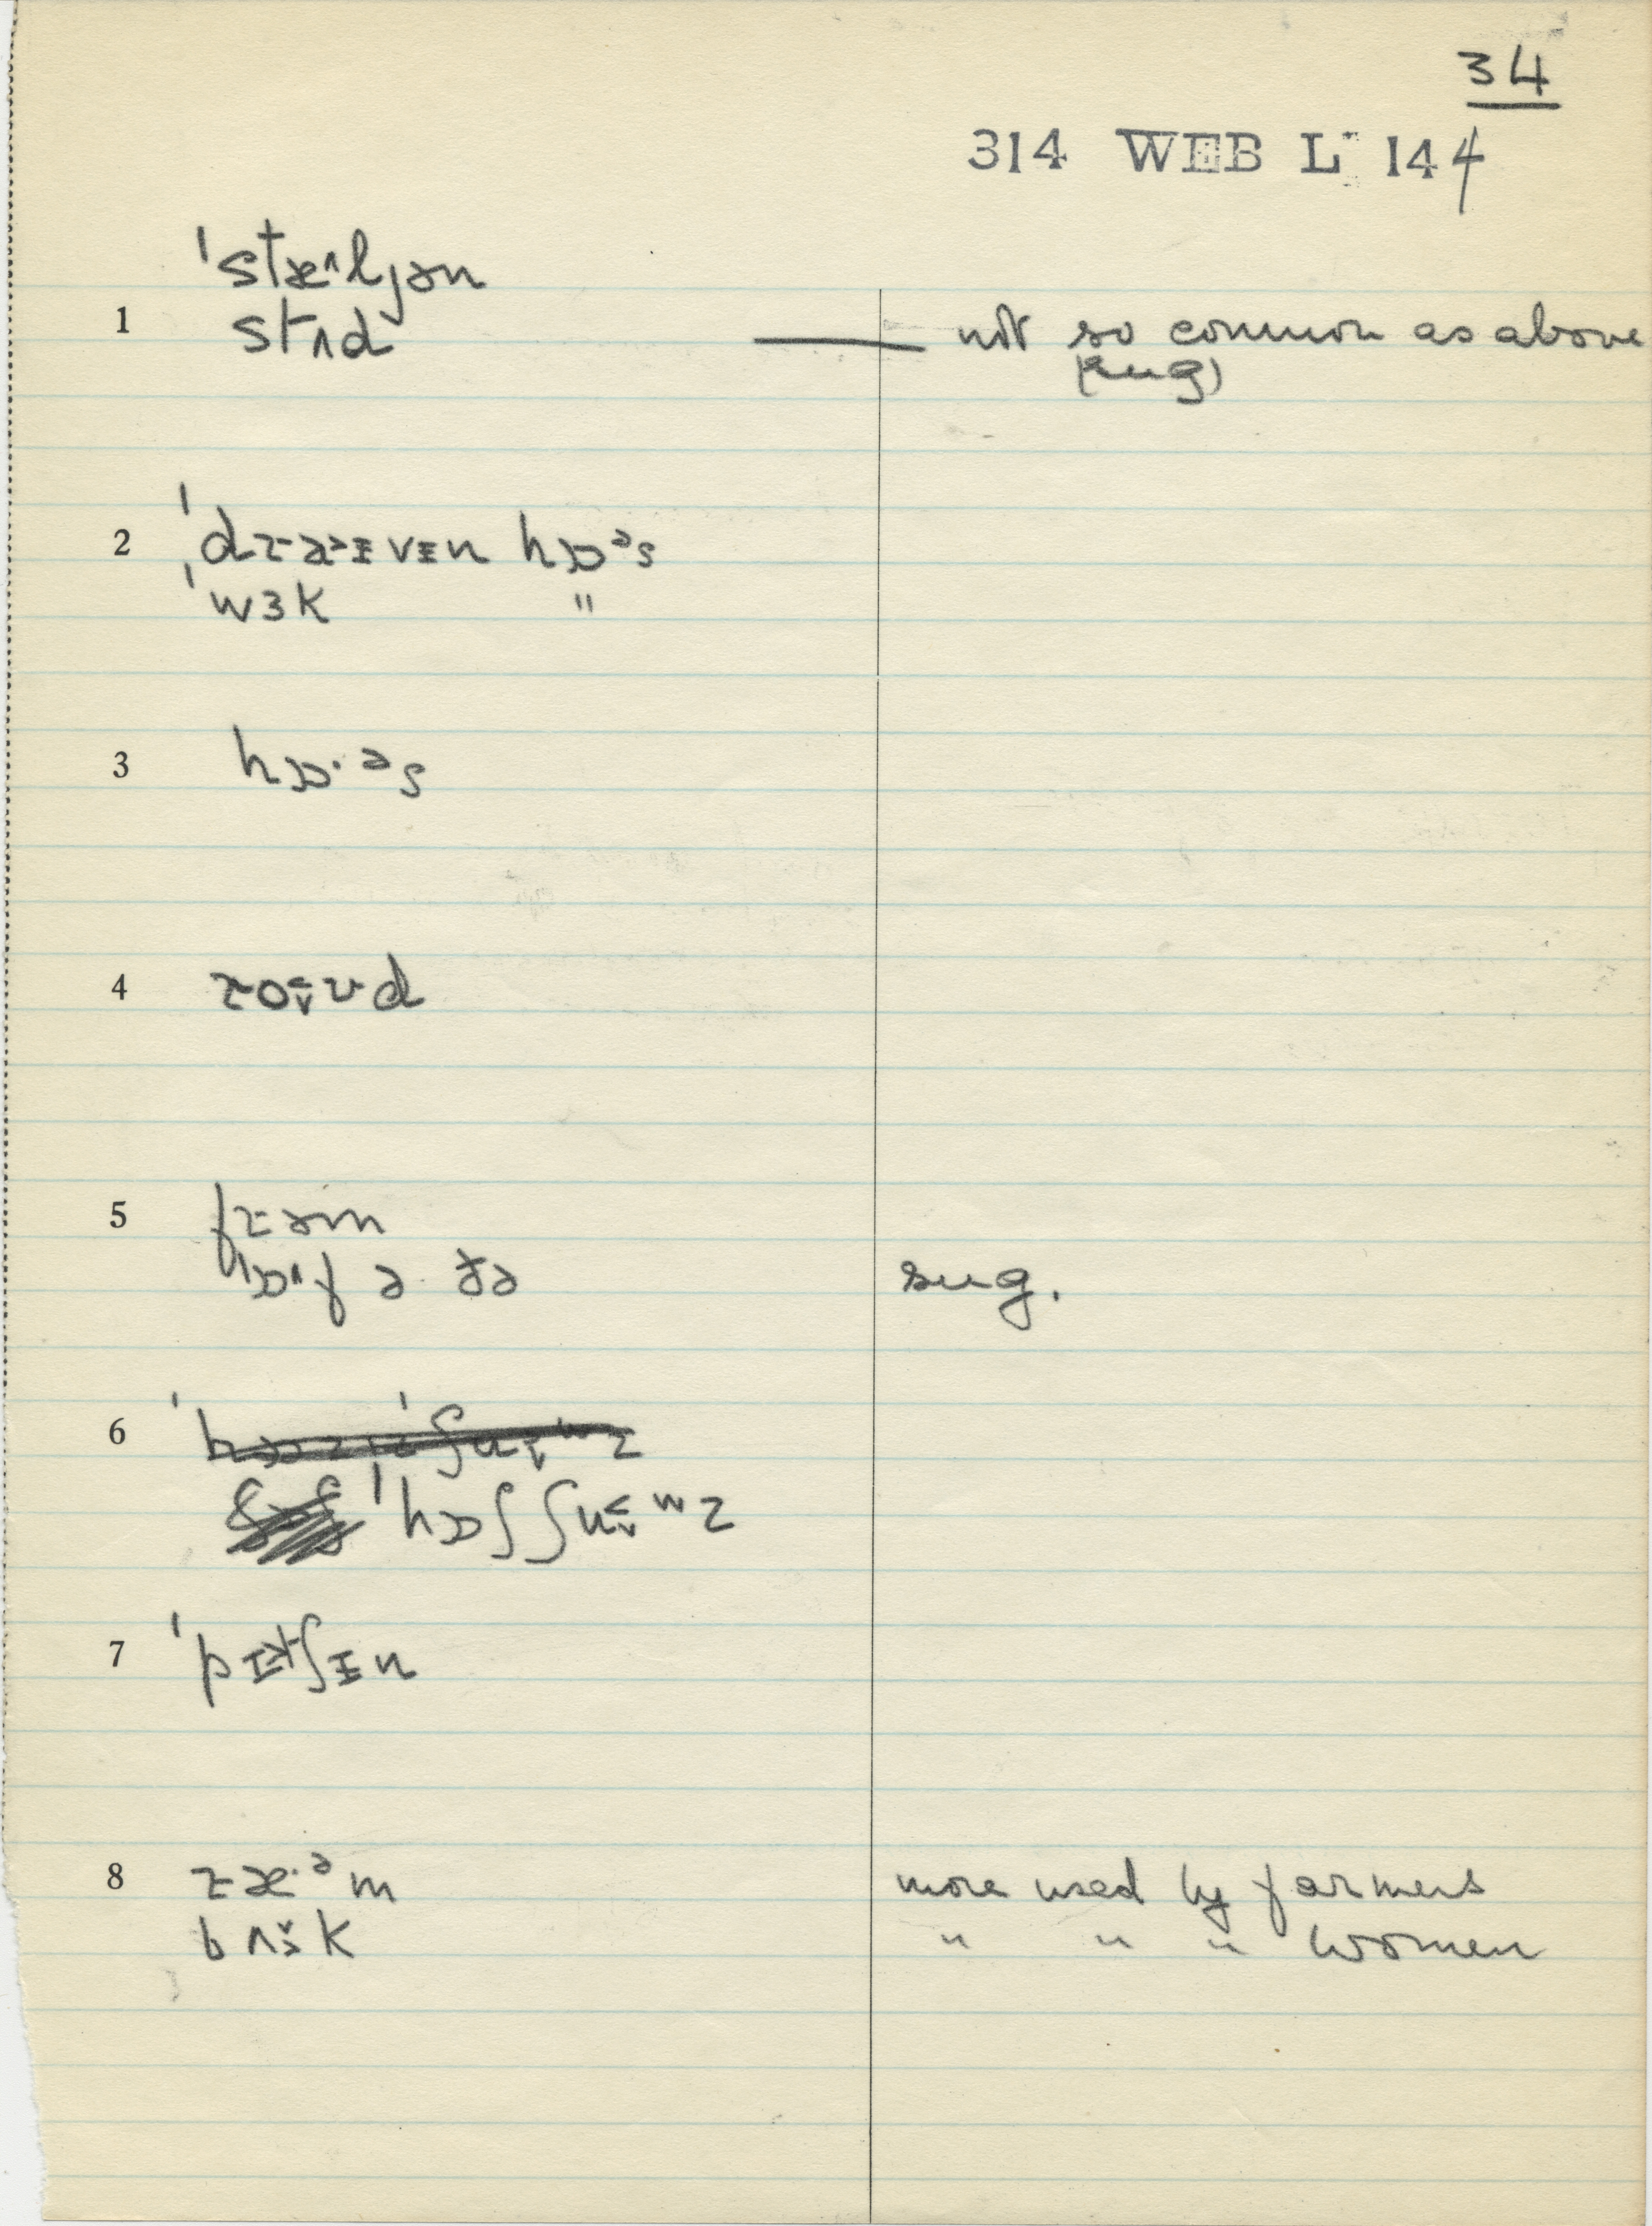 34
314 WEB L 144
ˈstæ˄ljən
1 stʌd — not so common as above
(sug)
2 ˈdɹa˃ɪvɪn hɒᵊs
ˈwɜk "
3 hɒ·ᵊs
4 ɹo˂˅ʊd
5 fɹəm
ɒ˄f ə ðə sug.
6
ˈhɒʃʃu˂˅ʷz
7 ˈpɪtʃɪn
8 ɹæ·ᵊm more used by farmers
bʌk " " " women